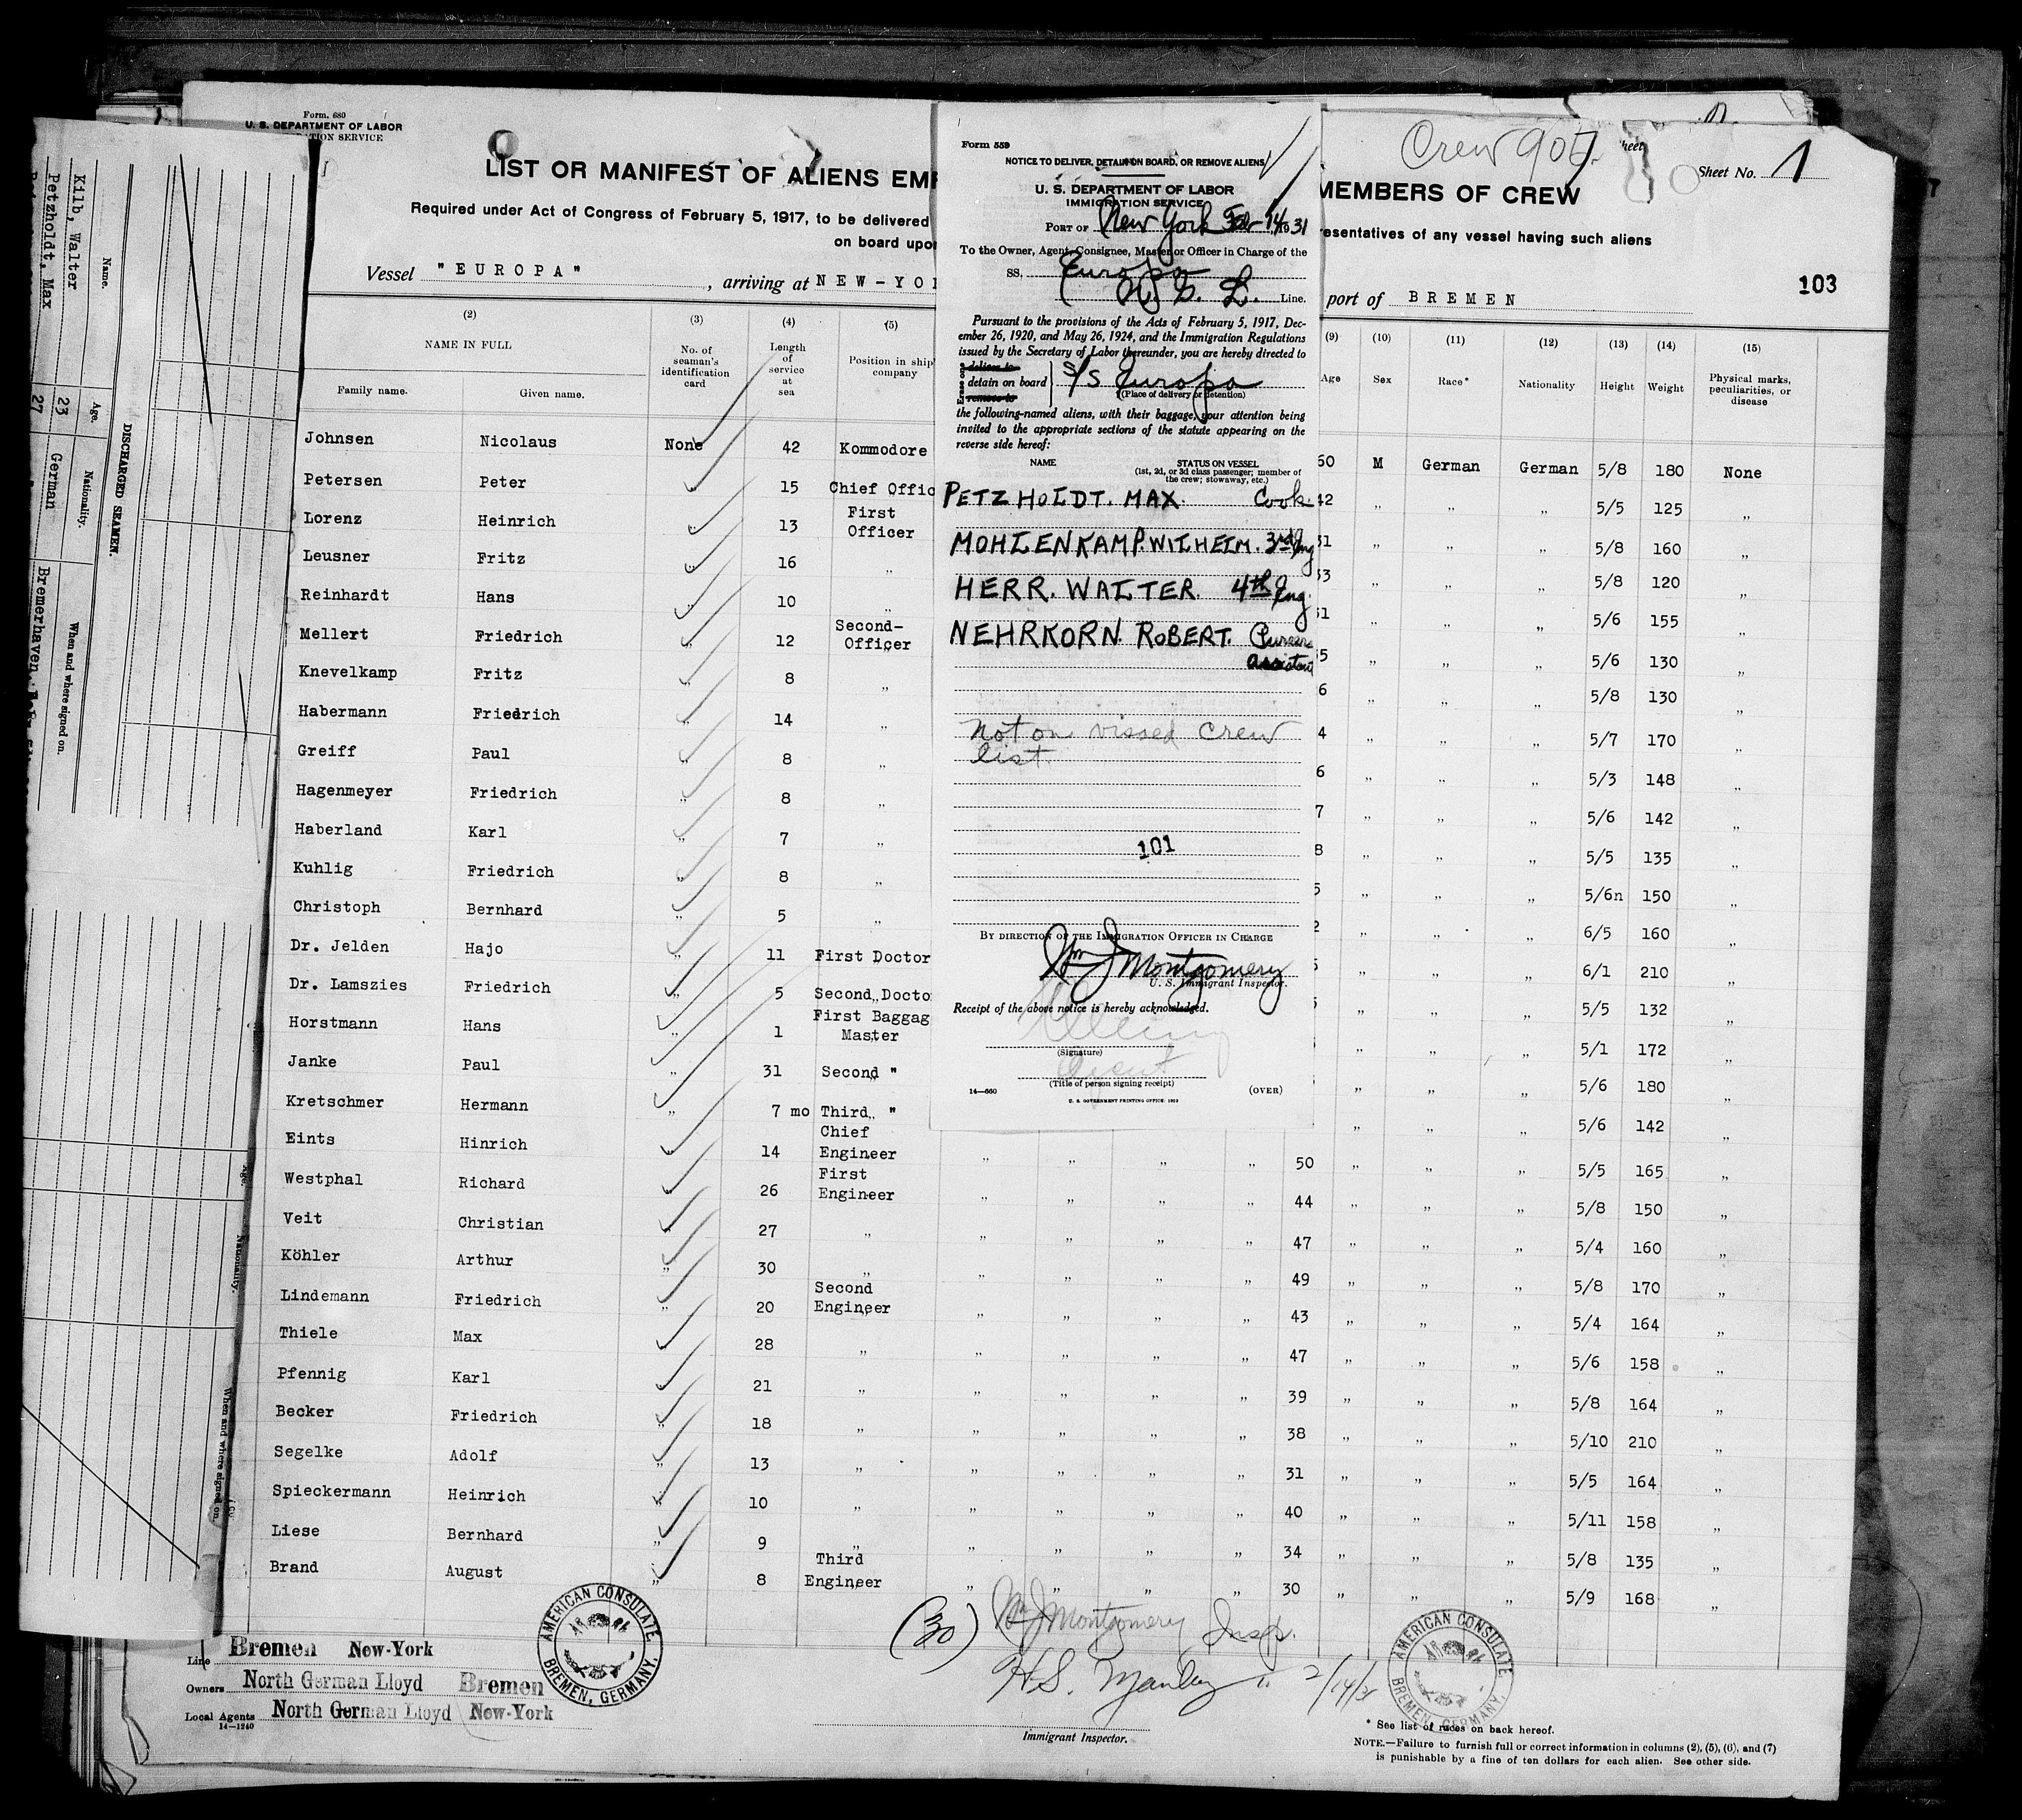 Form. 680
U. S. DEPARTMENT OF LABOR
TION SERVICE
LIST OR MANIFEST OF ALIENS EM
Required under Act of Congress of February 5, 1917, to be delivered
on board upon
Vessel "EUROPA" , arriving at NEW-YO
(2) (3) (4) (5)
NAME IN FULL
Family name. Given name.
No. of seaman's identification card
Length of service at sea
Position in ship' company
Johnsen Nicolaus None 42 Kommodore
Petersen Peter " 15 Chief Offic
Lorenz Heinrich " 13 First Officer
Leusner Fritz " 16 "
Reinhardt Hans " 10 "
Mellert Friedrich " 12 Second-Officer
Knevelkamp Fritz " 8 "
Habermann Friedrich " 14 "
Greiff Paul " 8 "
Hagenmeyer Friedrich " 8 "
Haberland Karl " 7 "
Kuhlig Friedrich " 8 "
Christoph Bernhard " 5 "
Dr. Jelden Hajo " 11 First Doctor
Dr. Lamszies Friedrich " 5 Second Docto
Horstmann Hans " 1 First Baggag Master
Janke Paul " 31 Second "
Kretschmer Hermann " 7 mo Third "
Eints Hinrich " 14 Chief Engineer " " " " 50
Westphal Richard " 26 First Engineer " " " " 44
Veit Christian " 27 " " " " " 47
Köhler Arthur " 30 " " " " " 49
Lindemann Friedrich " 20 Second Engineer " " " " 43
Thiele Max " 28 " " " " " 47
Pfennig Karl " 21 " " " " " 39
Becker Friedrich " 18 " " " " " 38
Segelke Adolf " 13 " " " " " 31
Spieckermann Heinrich " 10 " " " " " 40
Liese Bernhard " 9 " " " " " 34
Brand August " 8 Third Engineer " " " " 30
Form 559
NOTICE TO DELIVER, DETAIN ON BOARD, OR REMOVE ALIENS
U. S. DEPARTMENT OF LABOR
IMMIGRATION SERVICE
PORT OF New York Feb 14, 1931
To the Owner, Agent, Consignee, Master or Officer in Charge of the
SS. Europa
N. G. L. Line.
Pursuant to the provisions of the Acts of February 5, 1917, Dec-
ember 26, 1920, and May 26, 1924, and the Immigration Regulations
issued by the Secretary of Labor thereunder, you are hereby directed to
Erase one
deliver to
detain on board
remove to
S/S Europa
(Place of delivery or detention)
the following-named aliens, with their baggage, your attention being
invited to the appropriate sections of the statute appearing on the
reverse side hereof:
NAME STATUS ON VESSEL
(1st, 2d, or 3d class passenger; member of
the crew; stowaway, etc.)
PETZHOLDT. MAX. Cook.
MOHLENKAMP. WILHELM. 3rd Eng
HERR. WALTER 4th Eng.
NEHRKORN. ROBERT. Pursers
assistant
Not on vissed crew
list.
101
BY DIRECTION OF THE IMMIGRATION OFFICER IN CHARGE
Wm J Montgomery
U. S. Immigrant Inspector.
Receipt of the above notice is hereby acknowledged.
(Signature)
(Title of person signing receipt)
14—660 (OVER)
U. S. GOVERNMENT PRINTING OFFICE: 1929
Crew 907.
heet
Sheet No. 1
MEMBERS OF CREW
resentatives of any vessel having such aliens
103
port of BREMEN
(9) (10) (11) (12) (13) (14) (15)
Age Sex Race* Nationality Height Weight Physical marks, peculiarities, or disease
50 M German German 5/8 180 None
42 " " " 5/5 125 "
31 " " " 5/8 160 "
33 " " " 5/8 120 "
31 " " " 5/6 155 "
5 " " " 5/6 130 "
6 " " " 5/8 130 "
4 " " " 5/7 170 "
6 " " " 5/3 148 "
7 " " " 5/6 142 "
8 " " " 5/5 135 "
5 " " " 5/6n 150 "
2 " " " 6/5 160 "
" " " 6/1 210 "
" " " 5/5 132 "
" " " 5/1 172 "
" " " 5/6 180 "
" " " 5/6 142 "
" " " 5/5 165 "
" " " 5/8 150 "
" " " 5/4 160 "
" " " 5/8 170 "
" " " 5/4 164 "
" " " 5/6 158 "
" " " 5/8 164 "
" " " 5/10 210 "
" " " 5/5 164 "
" " " 5/11 158 "
" " " 5/8 135 "
" " " 5/9 168 "
Name. Age. Nationality. When and where signed on.
Kilb, Walter 23 German Bremerhaven
Petzholdt, Max 27
DISCHARGED SEAMEN.
Age. Nationality. When and where signed on.
AMERICAN CONSULATE
BREMEN, GERMANY.
(30) Wm J Montgomery Insp.
H.S. Manley " 2/14/31
Immigrant Inspector.
AMERICAN CONSULATE
BREMEN, GERMANY.
Line Bremen New-York
Owners North German Lloyd Bremen
Local Agents North German Lloyd New-York
14—1240
* See list of races on back hereof.
NOTE.—Failure to furnish full or correct information in columns (2), (5), (6), and (7)
is punishable by a fine of ten dollars for each alien. See other side.